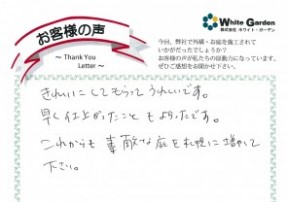 お客様の声
～ Thank You Letter ～
White Garden
株式会社 ホワイト・ガーデン
今回、弊社で外構・お庭を施工されて
いかがだったでしょうか？
お客様の声が私たちの原動力になっています。
ぜひご感想をお聞かせ下さい。
きれいにしてもらって うれしいです。
早く仕上がったことも よかったです。
これからも 素敵な庭を札幌に増やして
下さい。